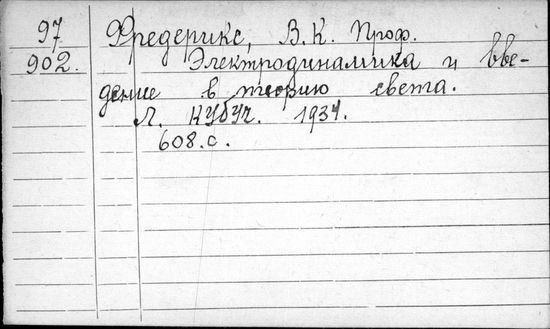 97
902.
Фредерикс, В.К. Проф.
Электродинамика и вве-
дение в теорию света.
Л. КУбУч. 1934.
608.с.